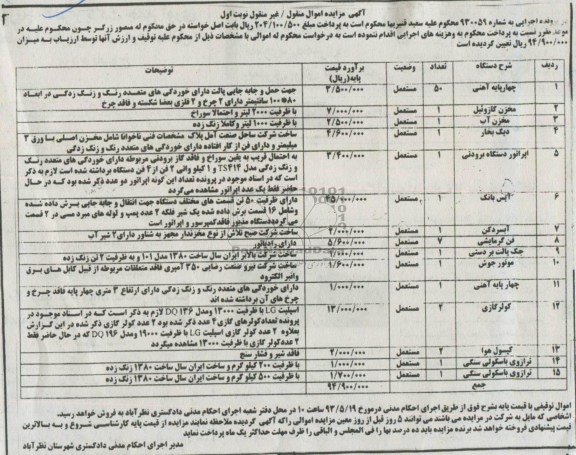 آگهی مزایده اموال منقول / غیر منقول نوبت اول
پرونده اجرایی به شماره ۹۳۰۰۵۹ محکوم علیه سعید قنبریها محکوم است به پرداخت مبلغ ۲۰۴/۱۰۰/۵۰۰ ریال بابت اصل خواسته در حق محکوم له منصور زرگر چون محکوم علیه در
موعد مقرر نسبت به پرداخت محکوم به وهزینه های اجرایی اقدام ننموده است به درخواست محکوم له اموالی با مشخصات ذیل از محکوم علیه توقیف و ارزش آنها توسط ارزیاب به میزان
۹۴/۹۰۰/۰۰۰ ریال تعیین گردیده است
ردیف شرح دستگاه تعداد وضعیت برآورد قیمت پایه(ریال) توضیحات
۱ چهارپایه آهنی ۵۰ مستعمل ۳/۵۰۰/۰۰۰ جهت حمل و جابه جایی پالت دارای خوردگی های متعدد رنگ و زنگ زدگی در ابعاد
۸۰*۱۰۰ سانتیمتر دارای ۲ چرخ و ۲ فلزی بعضا شکسته و فاقد چرخ
۲ مخزن گازوئیل ۱ مستعمل ۷/۰۰۰/۰۰۰ با ظرفیت ۲۰۰۰ لیتر و احتمالا سوراخ
۳ مخزن آب ۱ مستعمل ۲/۵۰۰/۰۰۰ با ظرفیت ۱۰۰۰ لیتر وکاملا زنگ زده
۴ دیگ بخار ۱ مستعمل ۴/۶۰۰/۰۰۰ ساخت شرکت ساحل صنعت آمل پلاک مشخصات فنی ناخوانا شامل مخزن اصلی با ورق ۳
میلیمتر و دارای فن از کار افتاده دارای خوردگی های متعدد رنگ و زنگ زدگی
۵ اپراتور دستگاه برودتی ۱ مستعمل ۳/۴۰۰/۰۰۰ به احتمال قریب به یقین سوراخ و فاقد گاز برودتی مربوطه دارای خوردگی های متعدد رنگ
و زنگ زدگی مدل TSF۱۴ و ۱ کیلو واتی ۲ فن از ۴ فن دستگاه برداشته شده است لازم به ذکر
است که در اسناد موجود در پرونده تعداد این گونه اپراتور دو عدد ذکر شده بود که در حال
حاضر فقط یک عدد اپراتور مشاهده می‌گردد
۶ آیس بانک ۱ مستعمل ۴۵/۰۰۰/۰۰۰ دارای ظرفیت ۵۰ تن قسمت های مختلف دستگاه جهت انتقال و جابه جایی برش داده شده
وشامل ۱۶ قسمت برش داده شده یک شیر فلکه ۲ عدد پمپ و لوله های مبرد مسی در ۲ قسمت
می‌گردددستگاه مذبور فاقدکمپرسور و اپراتور است
۷ آبسردکن ۱ مستعمل ۲/۰۰۰/۰۰۰ ساخت شرکت صبح تلاش از نوع مخزندار مجهز به شناور دارای۲ شیر آب
۸ فن گرمایشی ۷ مستعمل ۵/۶۰۰/۰۰۰ دارای رادیاتور
۹ جک پالت بر دستی ۱ مستعمل ۲/۰۰۰/۰۰۰ ساخت شرکت بالابر ایران سال ساخت ۱۳۸۰ مدل ۱۰۱ و به ظرفیت ۲ تن زنگ زده
۱۰ موتور جوش ۱ مستعمل ۱/۶۰۰/۰۰۰ ساخت شرکت نیرو صنعت رضایی ۳۵۰ آمپری فاقد متعلقات مربوطه از قبیل کابل های برق
وانبر الکترود
۱۱ چهار پایه آهنی ۱ مستعمل ۱/۰۰۰/۰۰۰ دارای خوردگی های متعدد رنگ و زنگ زدگی دارای ارتفاع ۳ متری چهار پایه فاقد چرخ و
چرخ های آن برداشته شده اند
۱۲ کولرگازی ۲ مستعمل ۱۳/۰۰۰/۰۰۰ اسپلیت LG با ظرفیت ۱۳۰۰۰ ومدل DQ ۱۳۶ لازم به ذکر است که در اسناد موجود در
پرونده تعدادکولرهای گازی ۴ عدد ذکر شده بود ۲ عدد کولر گازی ذکر شده در این گزارش
بعلاوه ۲ عدد کولر گازی اسپلیت LG با ظرفیت ۱۹۰۰۰ ومدل DQ ۱۹۶ که در حال حاضر فقط
۲ عدد کولر گازی با ظرفیت ۱۳۰۰۰ مشاهده میگردد
۱۳ کپسول هوا ۲ مستعمل ۲/۰۰۰/۰۰۰ فاقد شیر و فشار سنج
۱۴ ترازوی باسکولی سنگی ۱ مستعمل ۱/۰۰۰/۰۰۰ با ظرفیت ۲۰۰ کیلو گرم و ساخت ایران سال ساخت ۱۳۸۰ زنگ زده
۱۵ ترازوی باسکولی سنگی ۱ مستعمل ۱/۷۰۰/۰۰۰ با ظرفیت ۵۰۰ کیلو گرم و ساخت ایران سال ساخت ۱۳۸۰ زنگ زده
جمع ۹۴/۹۰۰/۰۰۰
اموال توقیفی با قیمت پایه بشرح فوق از طریق اجرای احکام مدنی درمورخ ۹۳/۵/۱۹ ساعت ۱۰ در محل دفتر شعبه اجرای احکام مدنی دادگستری نظرآباد به فروش خواهد رسید.
اشخاصی که مایل به شرکت در مزایده می باشند می توانند ۵ روز قبل از روز معین مزایده اموالی راکه آگهی گردیده ملاحظه نمایند مزایده از قیمت پایه کارشناسی شروع و به بالاترین
قیمت پیشنهادی فروخته خواهد شد برنده مزایده باید ده درصد بها را فی المجلس و الباقی را ظرف مهلت حداکثر یک ماه پرداخت نماید
مدیر اجرای احکام مدنی دادگستری شهرستان نظرآباد